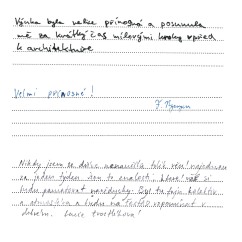 Výuka byla velice přínosná a posunula
mě za krátký čas mílovými kroky vpřed
k architektuře
Velmi přínosné!
Nikdy jsem se dříve nenaučila tolik věcí najednou
za jeden týden. Jsou to znalosti, které si
budu pamatovat navždycky. Byl to fajn kolektiv
a atmosféra a budu na tohle vzpomínat v
dobrém. Lucie